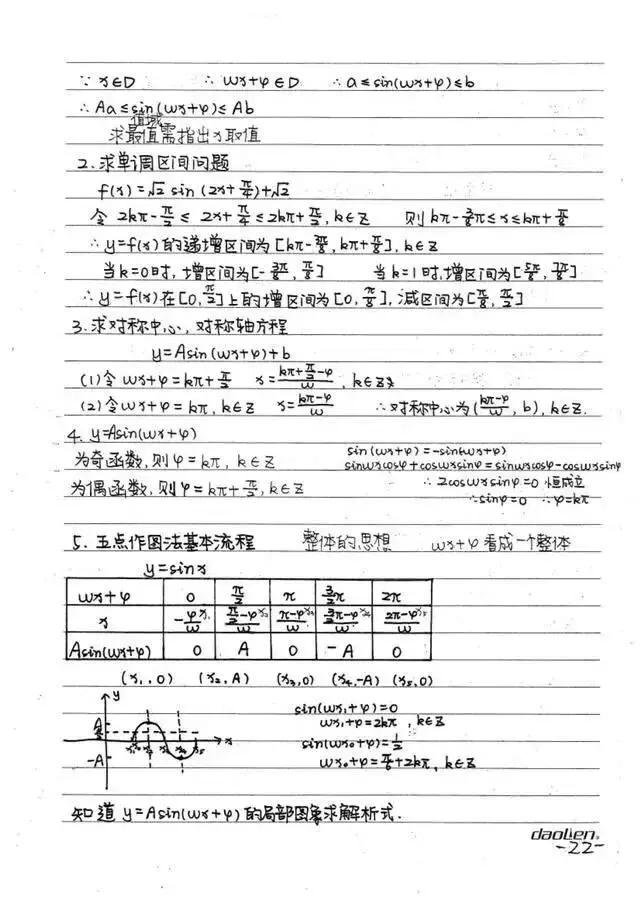 ∵ x∈D ∴ ωx+φ∈D ∴ a≤sin(ωx+φ)≤b
∴ Aa≤sin(ωx+φ)≤Ab
值域
求最值需指出x取值
2.求单调区间问题
f(x)=√2 sin (2x+π/4)+√2
令 2kπ-π/2≤ 2x+π/4≤2kπ+π/2, k∈Z 则 kπ-3/8π≤x≤kπ+π/8
∴y=f(x)的递增区间为[kπ-3π/8, kπ+π/8], k∈Z
当k=0时,增区间为[-3π/8, π/8] 当k=1时,增区间为[5π/8, 9π/8]
∴y=f(x)在[0,π/2]上的增区间为[0,π/8],减区间为[π/8,π/2]
3.求对称中心,对称轴方程
y=Asin(ωx+φ)+b
(1)令ωx+φ=kπ+π/2 x=(kπ+π/2-φ)/ω, k∈Z
(2)令ωx+φ=kπ, k∈Z x=(kπ-φ)/ω ∴对称中心为((kπ-φ)/ω, b), k∈Z.
4. y=Asin(ωx+φ)
为奇函数,则φ=kπ, k∈Z sin(ωx+φ)=-sin(-ωx+φ)
sinωxcosφ+cosωxsinφ=sinωxcosφ-cosωxsinφ
为偶函数,则φ=kπ+π/2, k∈Z ∴2cosωxsinφ=0 恒成立
∴sinφ=0 ∴φ=kπ
5.五点作图法基本流程 整体的思想 ωx+φ看成一个整体
y=sinx
ωx+φ 0 π/2 π 3/2π 2π
x -φ/ω x₁ (π/2-φ)/ω x₂ (π-φ)/ω x₃ (3/2π-φ)/ω x₄ (2π-φ)/ω x₅
Asin(ωx+φ) 0 A 0 -A 0
(x₁,0) (x₂,A) (x₃,0) (x₄,-A) (x₅,0)
y
A
-A
x₁ x₂ x₃ x₄ x₅ x
sin(ωx₁+φ)=0
ωx₁+φ=2kπ, k∈Z
sin(ωx₀+φ)=1/2
ωx₀+φ=π/6+2kπ, k∈Z
知道y=Asin(ωx+φ)的局部图象求解析式.
daolien
-22-